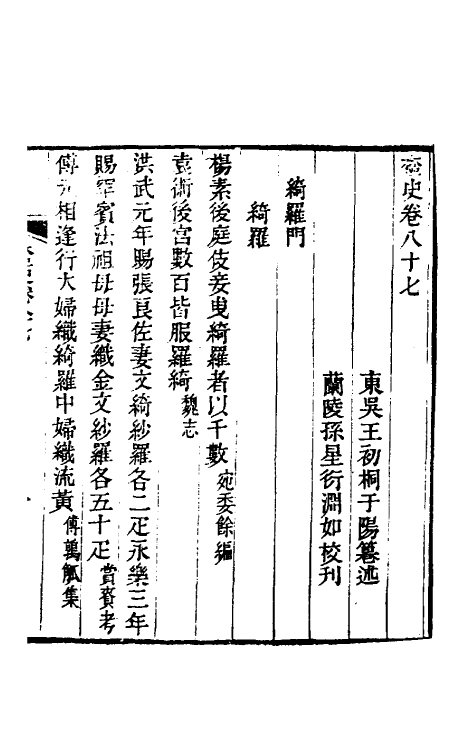 奩史卷八十七
東吳王初桐于陽篹述
蘭陵孫星衍淵如校刊
綺羅門
綺羅
楊素後庭伎妾曳綺羅者以千數宛委餘編
袁術後宮數百皆服羅綺魏志
洪武元年賜張良佐妻文綺紗羅各二疋永樂三年
賜罕賓法祖母母妻織金文紗羅各五十疋賞賚考
傅玄相逢行大婦織綺羅中婦織流黃傅鶉觚集